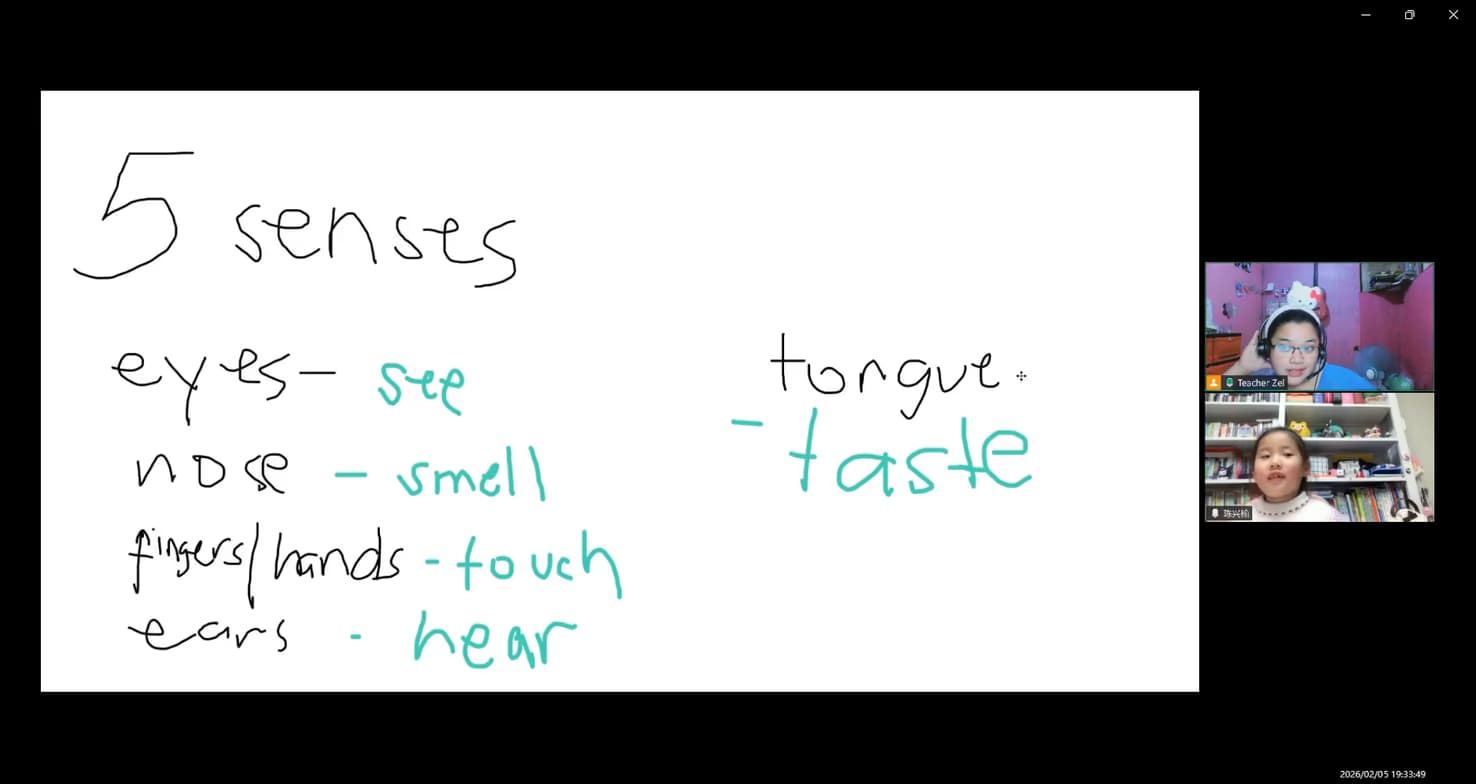 5 senses
eyes- see
nose - smell
fingers/hands - touch
ears - hear
tongue
- taste
Teacher Zel
2026/02/05 19:33:49